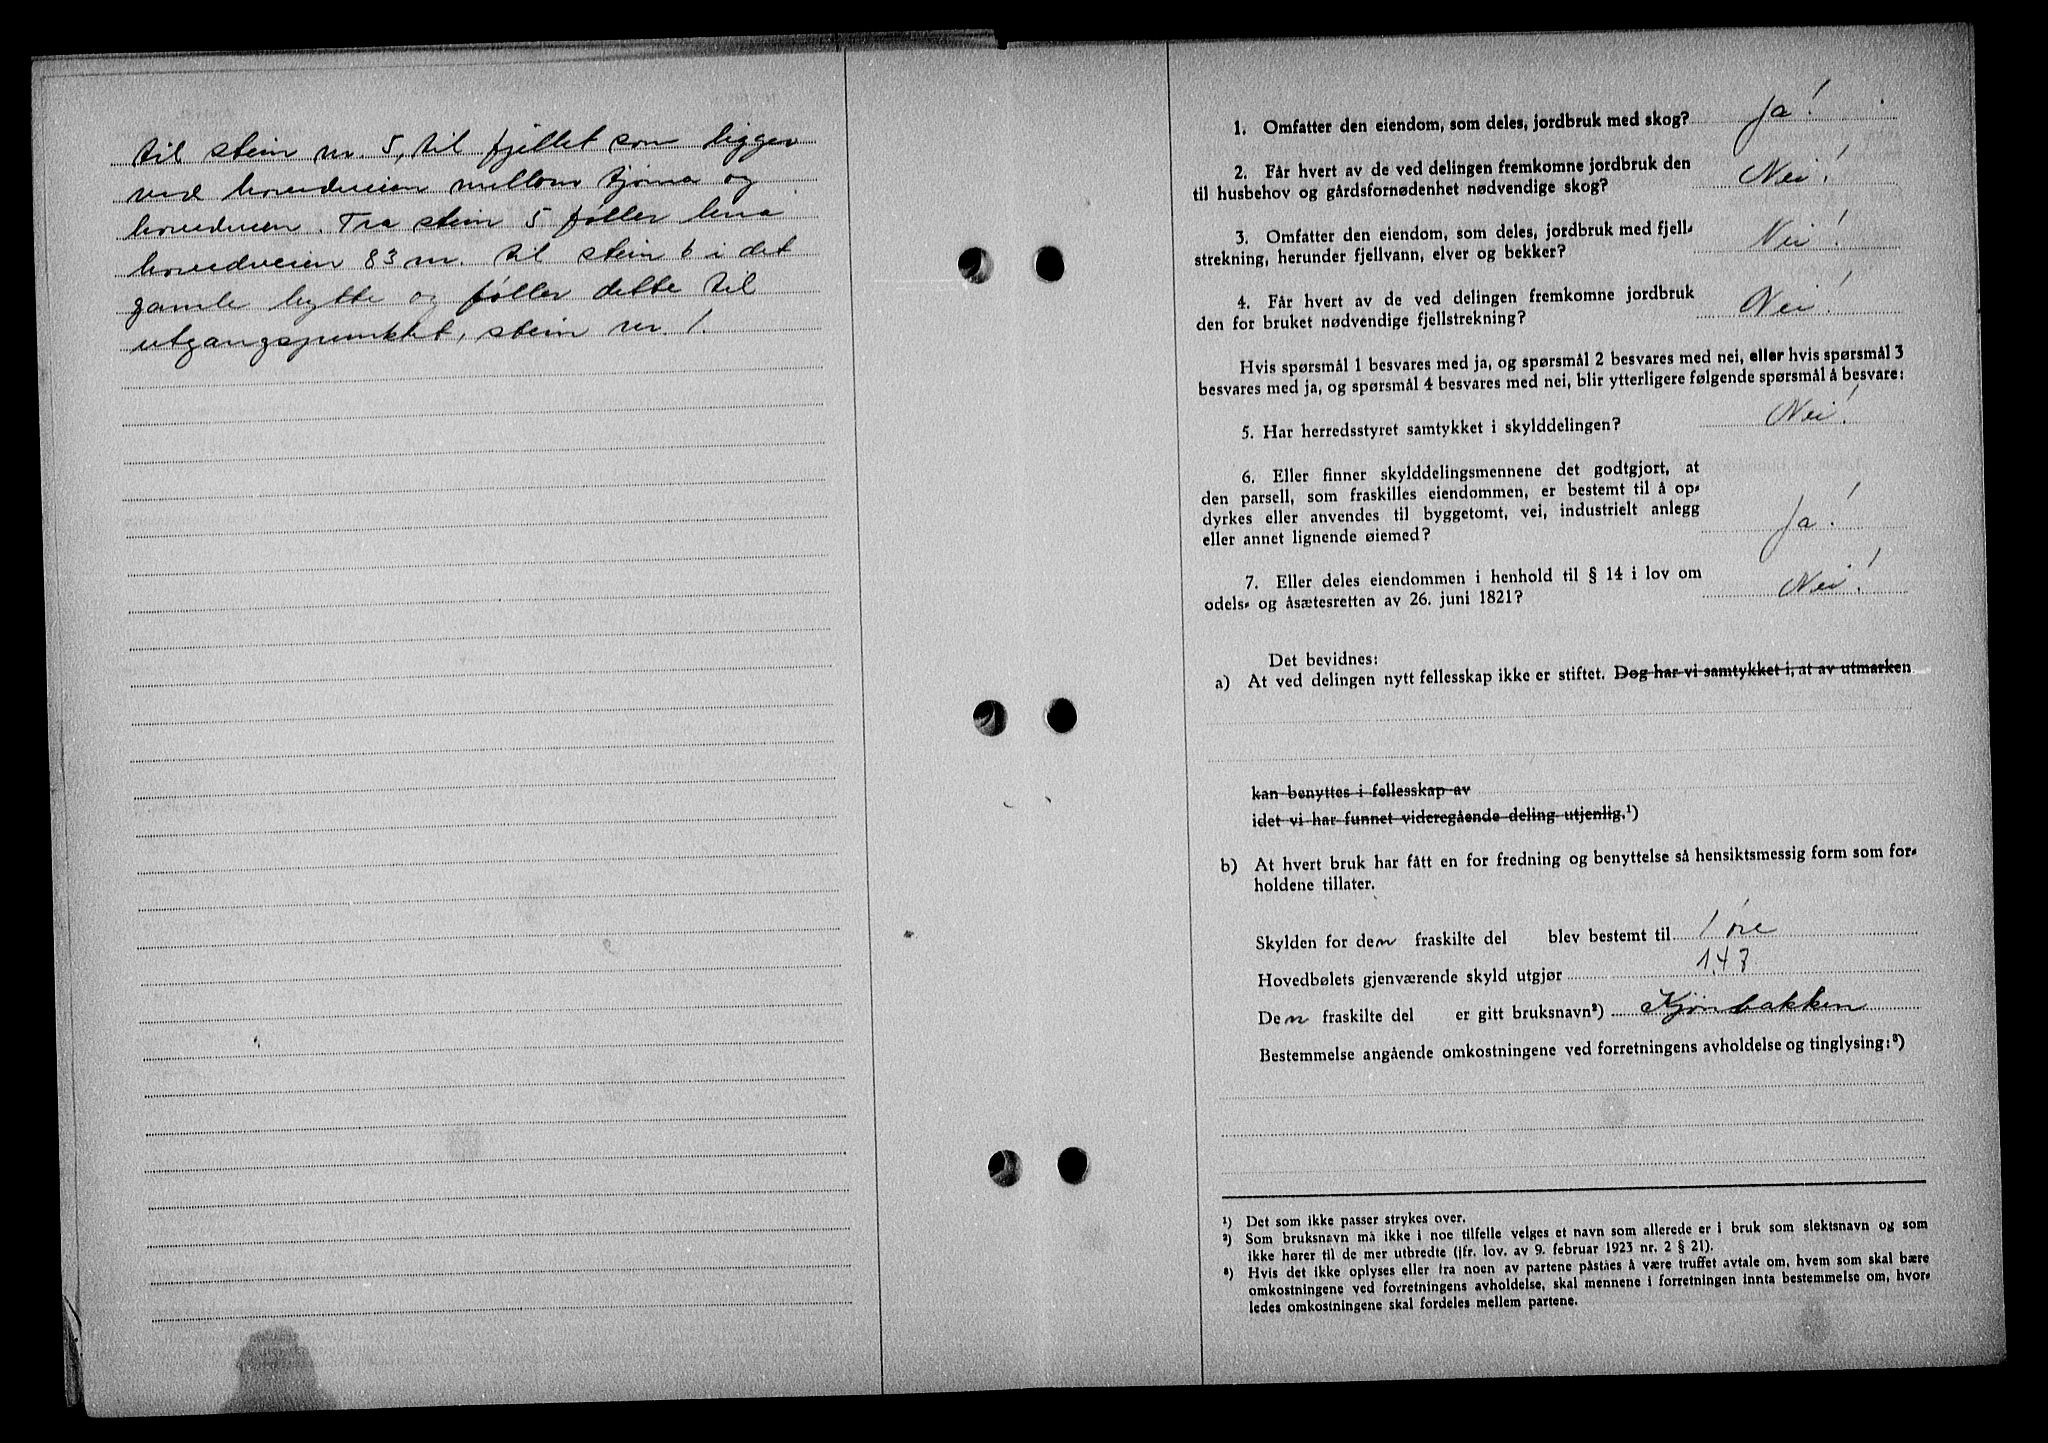 til stein nr. 5, til fjellet som ligger
ved hovedveien mellom tjönna og
hovedveien. Fra stein 5 føller lina
hovedveien 83 m. til stein 6 i det
gamle bytte og føller dette til
utgangspunktet, stein nr. 1.
1. Omfatter den eiendom, som deles, jordbruk med skog? Ja!
2. Får hvert av de ved delingen fremkomne jordbruk den
til husbehov og gårdsfornødenhet nødvendige skog? Nei!
3. Omfatter den eiendom, som deles, jordbruk med fjell-
strekning, herunder fjellvann, elver og bekker? Nei!
4. Får hvert av de ved delingen fremkomne jordbruk
den for bruket nødvendige fjellstrekning? Nei!
Hvis spørsmål 1 besvares med ja, og spørsmål 2 besvares med nei, eller hvis spørsmål 3
besvares med ja, og spørsmål 4 besvares med nei, blir ytterligere følgende spørsmål å besvare:
5. Har herredsstyret samtykket i skylddelingen? Nei!
6. Eller finner skylddelingsmennene det godtgjort, at
den parsell, som fraskilles eiendommen, er bestemt til å op-
dyrkes eller anvendes til byggetomt, vei, industrielt anlegg
eller annet lignende øiemed? Ja!
7. Eller deles eiendommen i henhold til § 14 i lov om
odels- og åsætesretten av 26. juni 1821? Nei!
Det bevidnes:
a) At ved delingen nytt fellesskap ikke er stiftet. Dog har vi samtykket i, at av utmarken
kan benyttes i fellesskap av
idet vi har funnet videregående deling utjenlig.¹)
b) At hvert bruk har fått en for fredning og benyttelse så hensiktsmessig form som for-
holdene tillater.
Skylden for den fraskilte del blev bestemt til 1 øre
Hovedbølets gjenværende skyld utgjør 1,43
Den fraskilte del er gitt bruksnavn²) Kjönbakken
Bestemmelse angående omkostningene ved forretningens avholdelse og tinglysing:³)
¹) Det som ikke passer strykes over.
²) Som bruksnavn må ikke i noe tilfelle velges et navn som allerede er i bruk som slektsnavn og som
ikke hører til de mer utbredte (jfr. lov. av 9. februar 1923 nr. 2 § 21).
³) Hvis det ikke oplyses eller fra noen av partene påståes å være truffet avtale om, hvem som skal bære
omkostningene ved forretningens avholdelse, skal mennene i forretningen innta bestemmelse om, hvor-
ledes omkostningene skal fordeles mellem partene.